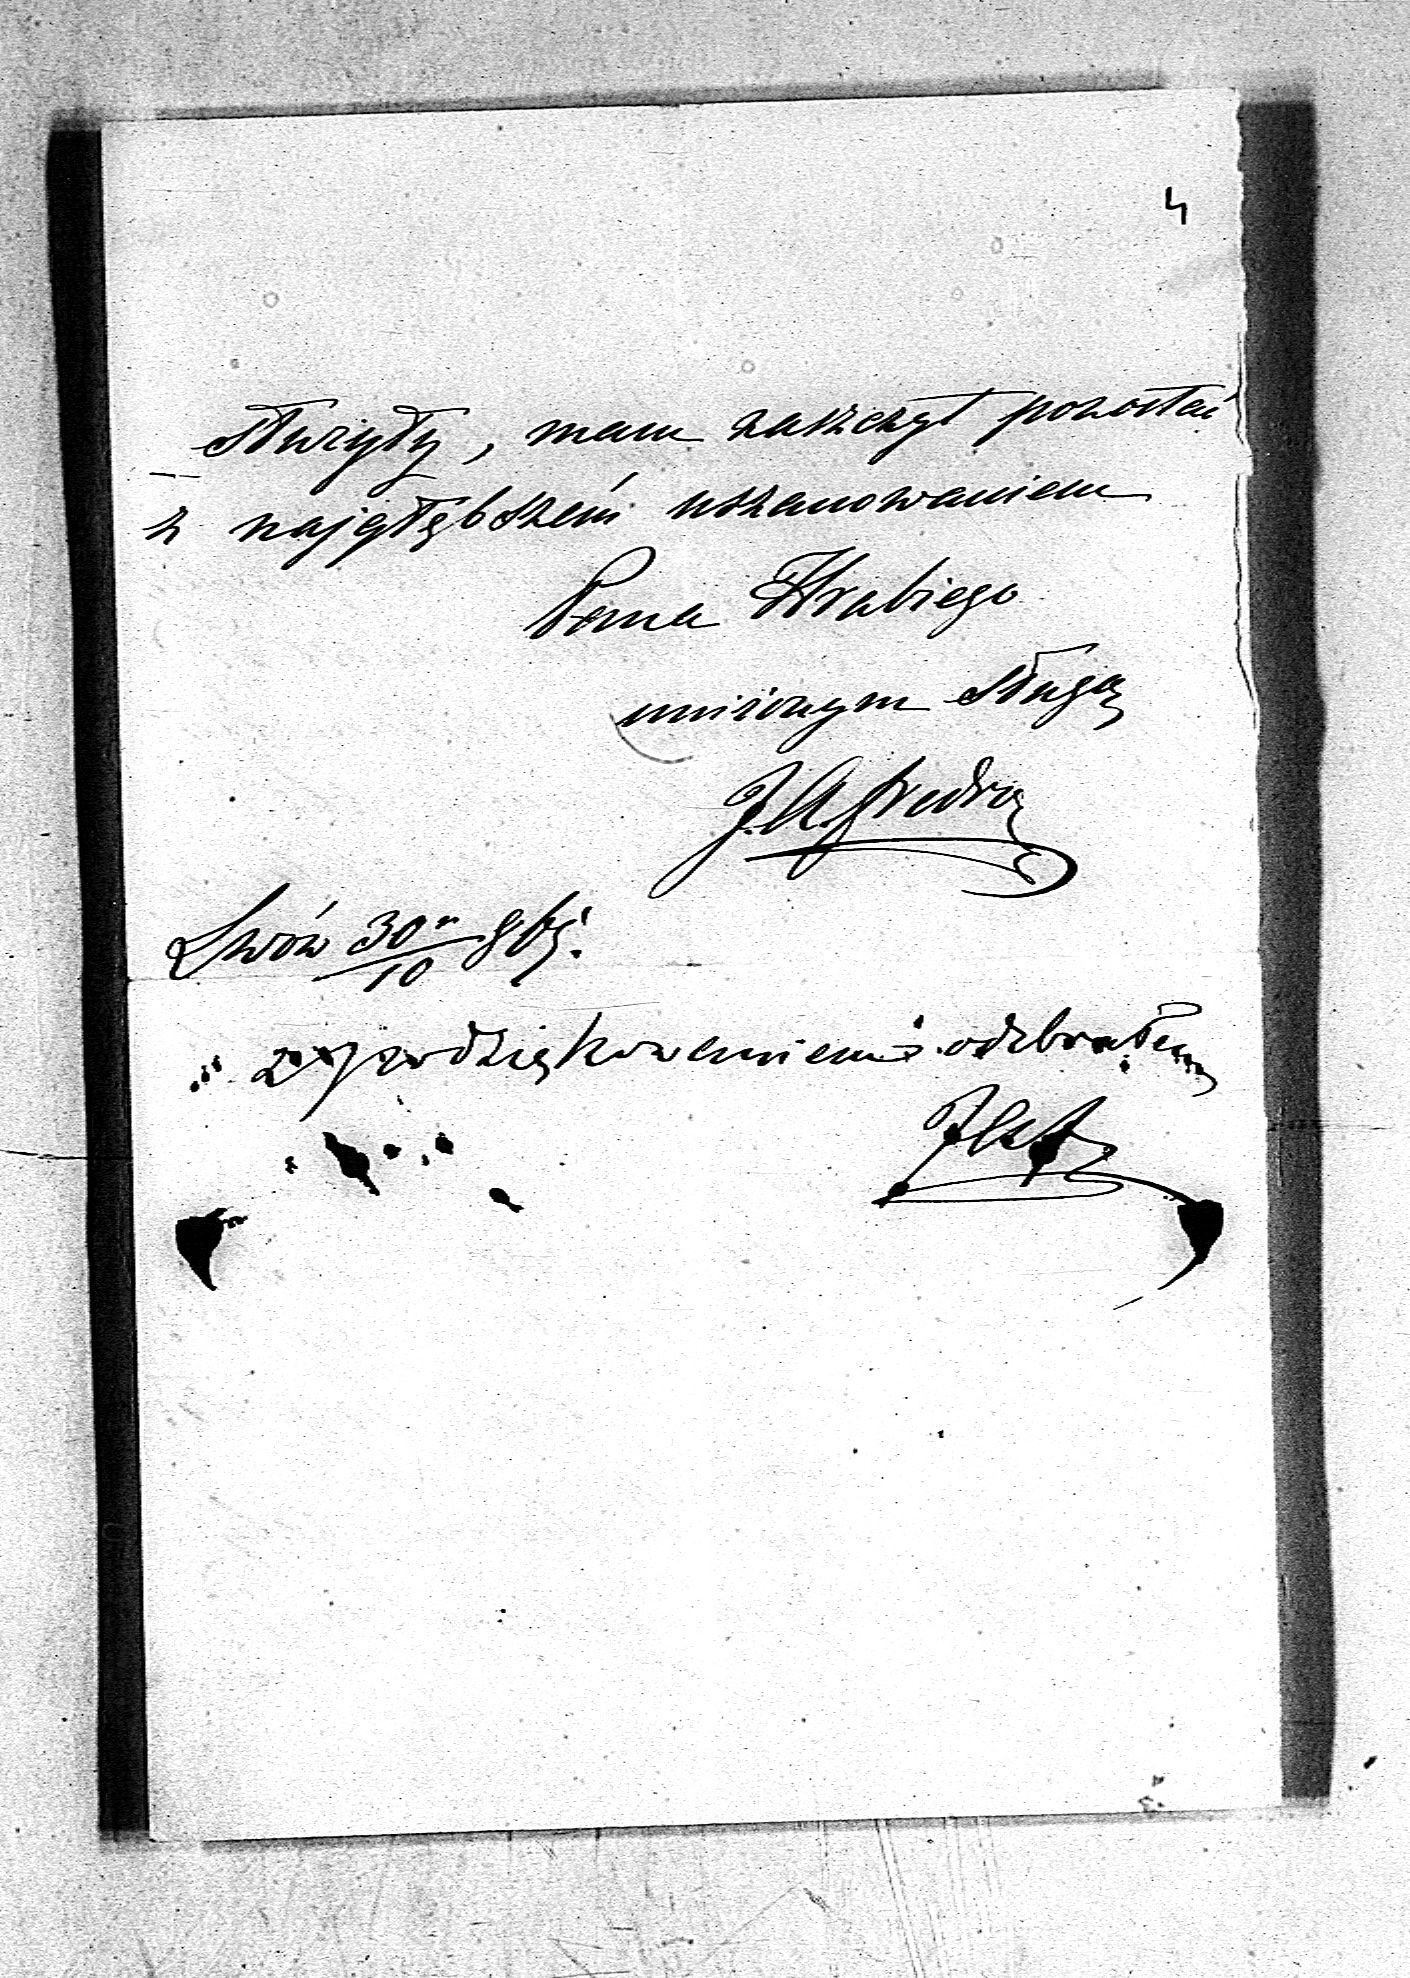 4
służyły, mam zaszczyt pozostać
z najgłębszém uszanowaniem
Pana Hrabiego
uniżonym sługą
J. A. Fredro
Lwów 30/10 865.
z podziękowaniem odebrałem
JAF